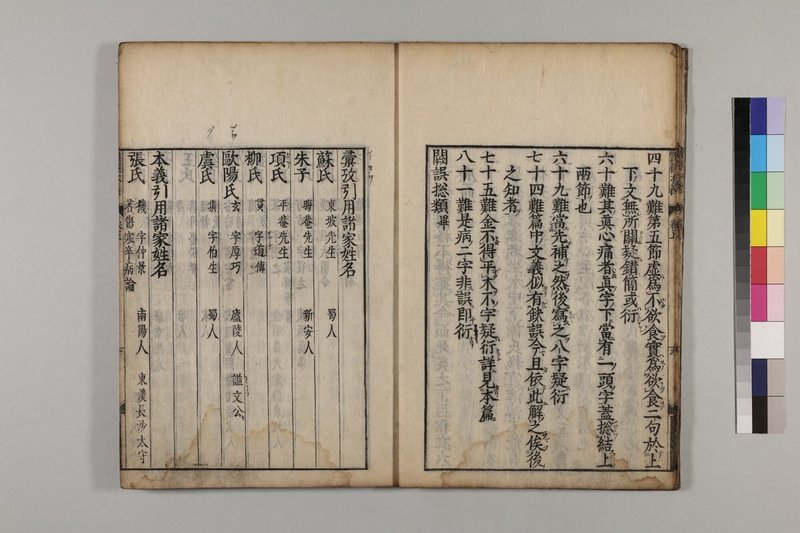 四十九難第五節虛為不欲食實為欲食二句於上
下文無所關疑錯簡或衍
六十難其真心痛者真字下當有一頭字蓋捴結上
兩節也
六十九難當先補之然後寫之八字疑衍
七十四難篇中文義似有缺誤今且依此解之俟後
之知者
七十五難金不得平木不字疑衍詳見本篇
八十一難是病二字非誤即衍
闕誤捴類畢
彙攷引用諸家姓名
蘇氏 東坡先生 蜀人
朱子 晦庵先生 新安人
項氏 平庵先生
柳氏 貫 字道傳
歐陽氏 玄 字厚巧 廬陵人 謚文公
虞氏 集 字伯生 蜀人
本義引用諸家姓名
張氏 機 字仲景 南陽人 東漢長沙太守
著傷寒卒病論